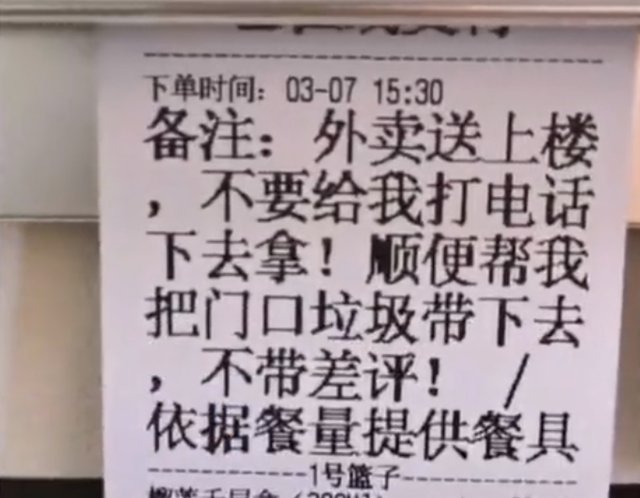 下单时间：03-07 15:30
备注：外卖送上楼
，不要给我打电话
下去拿！顺便帮我
把门口垃圾带下去
，不带差评！ /
依据餐量提供餐具
1号篮子